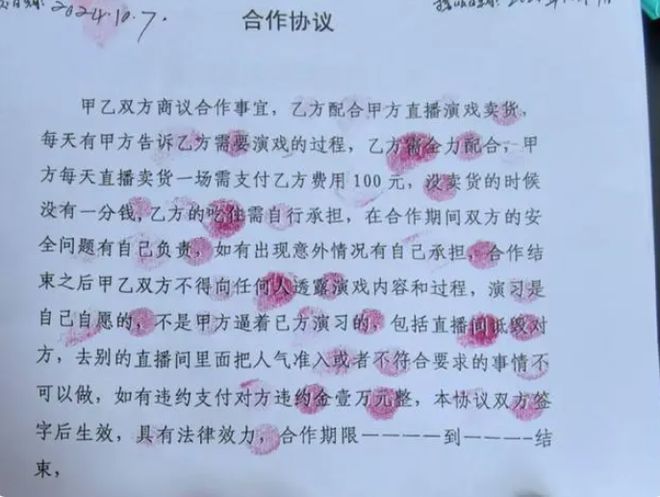 2024.10.7.
合作协议
甲乙双方商议合作事宜，乙方配合甲方直播演戏卖货，
每天有甲方告诉乙方需要演戏的过程，乙方需全力配合，甲
方每天直播卖货一场需支付乙方费用100元，没卖货的时候
没有一分钱，乙方的吃住需自行承担，在合作期间双方的安
全问题有自己负责，如有出现意外情况有自己承担，合作结
束之后甲乙双方不得向任何人透露演戏内容和过程，演习是
自己自愿的，不是甲方逼着已方演习的，包括直播间诋毁对
方，去别的直播间里面把人气准入或者不符合要求的事情不
可以做，如有违约支付对方违约金壹万元整，本协议双方签
字后生效，具有法律效力，合作期限————到————结
束，